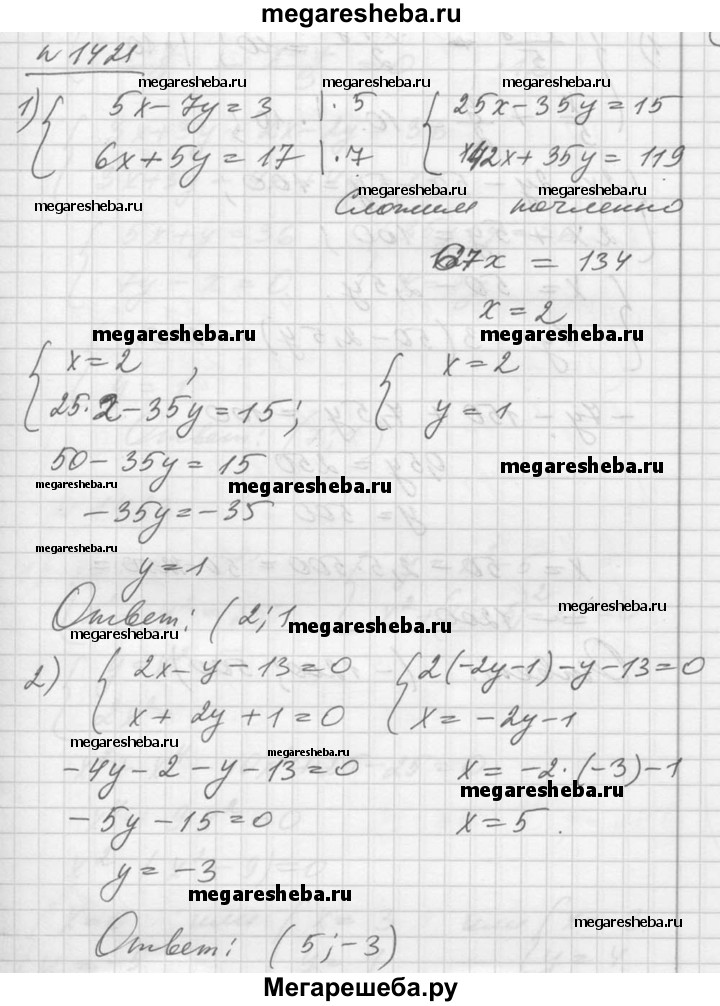 megaresheba.ru
№1421
megaresheba.ru megaresheba.ru megaresheba.ru
1) { 5x-7y=3 |·5 { 25x-35y=15
6x+5y=17 |·7 42x+35y=119
megaresheba.ru megaresheba.ru megaresheba.ru
Сложим почленно
67x = 134
x=2
megaresheba.ru megaresheba.ru
{ x=2 , { x=2
25·2-35y=15; y=1
50-35y=15 megaresheba.ru
megaresheba.ru megaresheba.ru
-35y=-35
megaresheba.ru
y=1
megaresheba.ru
Ответ: (2;1
megaresheba.ru megaresheba.ru
2) { 2x-y-13=0 { 2(-2y-1)-y-13=0
x+2y+1=0 x=-2y-1
megaresheba.ru megaresheba.ru
-4y-2-y-13=0 x=-2·(-3)-1
megaresheba.ru megaresheba.ru
-5y-15=0 x=5.
y=-3
megaresheba.ru megaresheba.ru
Ответ: (5;-3)
Мегарешеба.ру